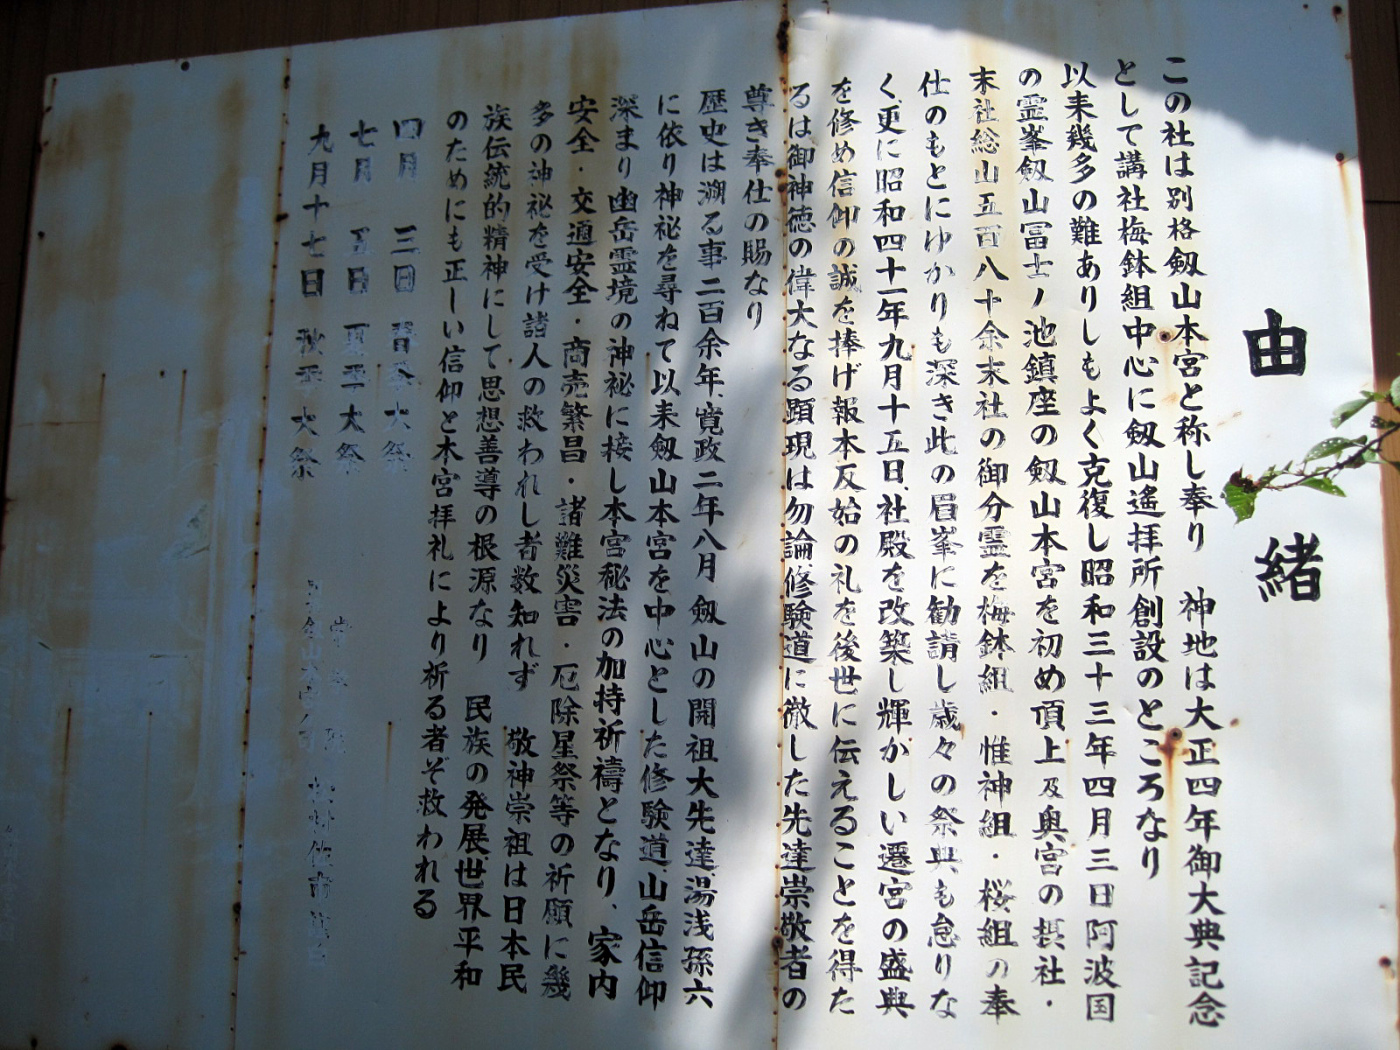 由緒
この社は別格剱山本宮と称し奉り　神地は大正四年御大典記念
として講社梅鉢組中心に剱山遙拝所創設のところなり
以来幾多の難ありしもよく克復し昭和三十三年四月三日阿波国
の霊峯剱山冨士ノ池鎮座の剱山本宮を初め頂上及奥宮の摂社・
末社総山五百八十余末社の御分霊を梅鉢組・惟神組・桜組の奉
仕のもとにゆかりも深き此の眉峯に勧請し歳々の祭典も怠りな
く、更に昭和四十一年九月十五日、社殿を改築し輝かしい遷宮の盛典
を修め信仰の誠を捧げ報本反始の礼を後世に伝えることを得た
るは御神徳の偉大なる顕現は勿論、修験道に徹した先達崇敬者の
尊き奉仕の賜なり
歴史は溯る事二百余年、寛政二年八月　剱山の開祖大先達湯浅孫六
に依り神祕を尋ねて以来剱山本宮を中心とした修験道、山岳信仰
深まり幽岳霊境の神祕に接し本宮秘法の加持祈禱となり、家内
安全・交通安全・商売繁昌・諸難災害・厄除星祭等の祈願に幾
多の神祕を受け諸人の救われし者数知れず　敬神崇祖は日本民
族伝統的精神にして思想善導の根源なり　民族の発展世界平和
のためにも正しい信仰と本宮拝礼により祈る者ぞ救われる
四月　三日　春季大祭
七月　五日　夏季大祭
九月十七日　秋季大祭